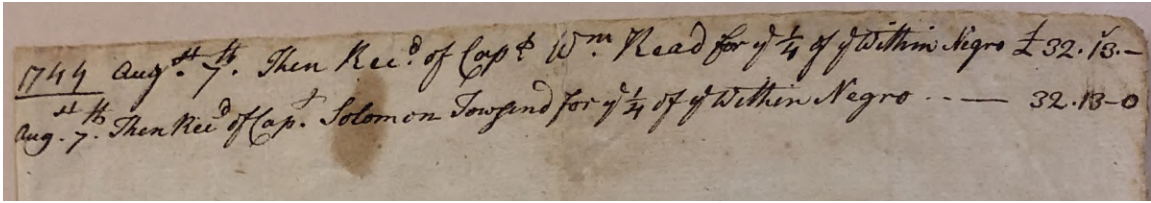 1744 Augst. 7th. Then Recd. of Capt Wm. Read for ye 1/4 of ye Within Negro £32.13.-
Augst. 7th. Then Recd of Capt. Solomon Townsend for ye 1/4 of ye Within Negro - - — 32.13-0